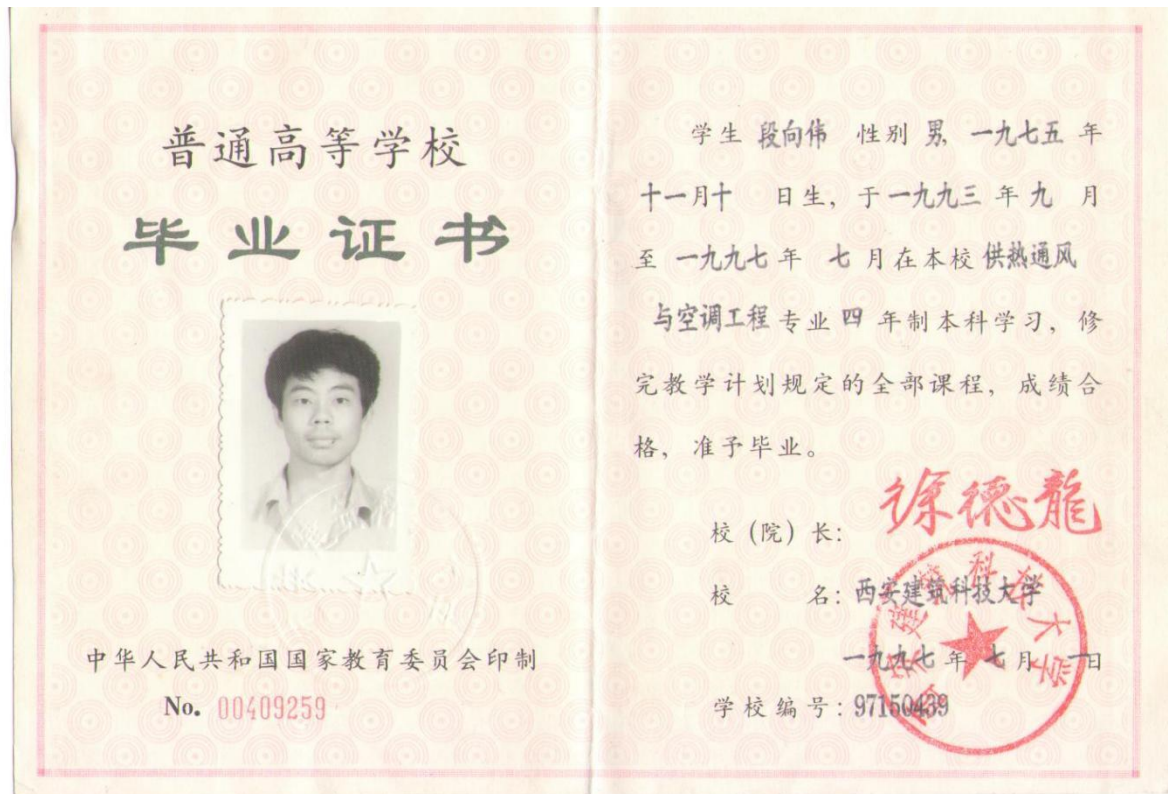 普通高等学校
毕业证书
中华人民共和国国家教育委员会印制
No. 00409259
学生 段向伟 性别 男, 一九七五 年
十一月十 日生, 于一九九三 年 九 月
至 一九九七 年 七 月在本校 供热通风
与空调工程 专业 四 年制本科学习, 修
完教学计划规定的全部课程, 成绩合
格, 准予毕业。
徐德龍
校 (院) 长:
校 名: 西安建筑科技大学
一九九七 年 七 月 一日
学校编号: 97150439
西安建筑科技大学